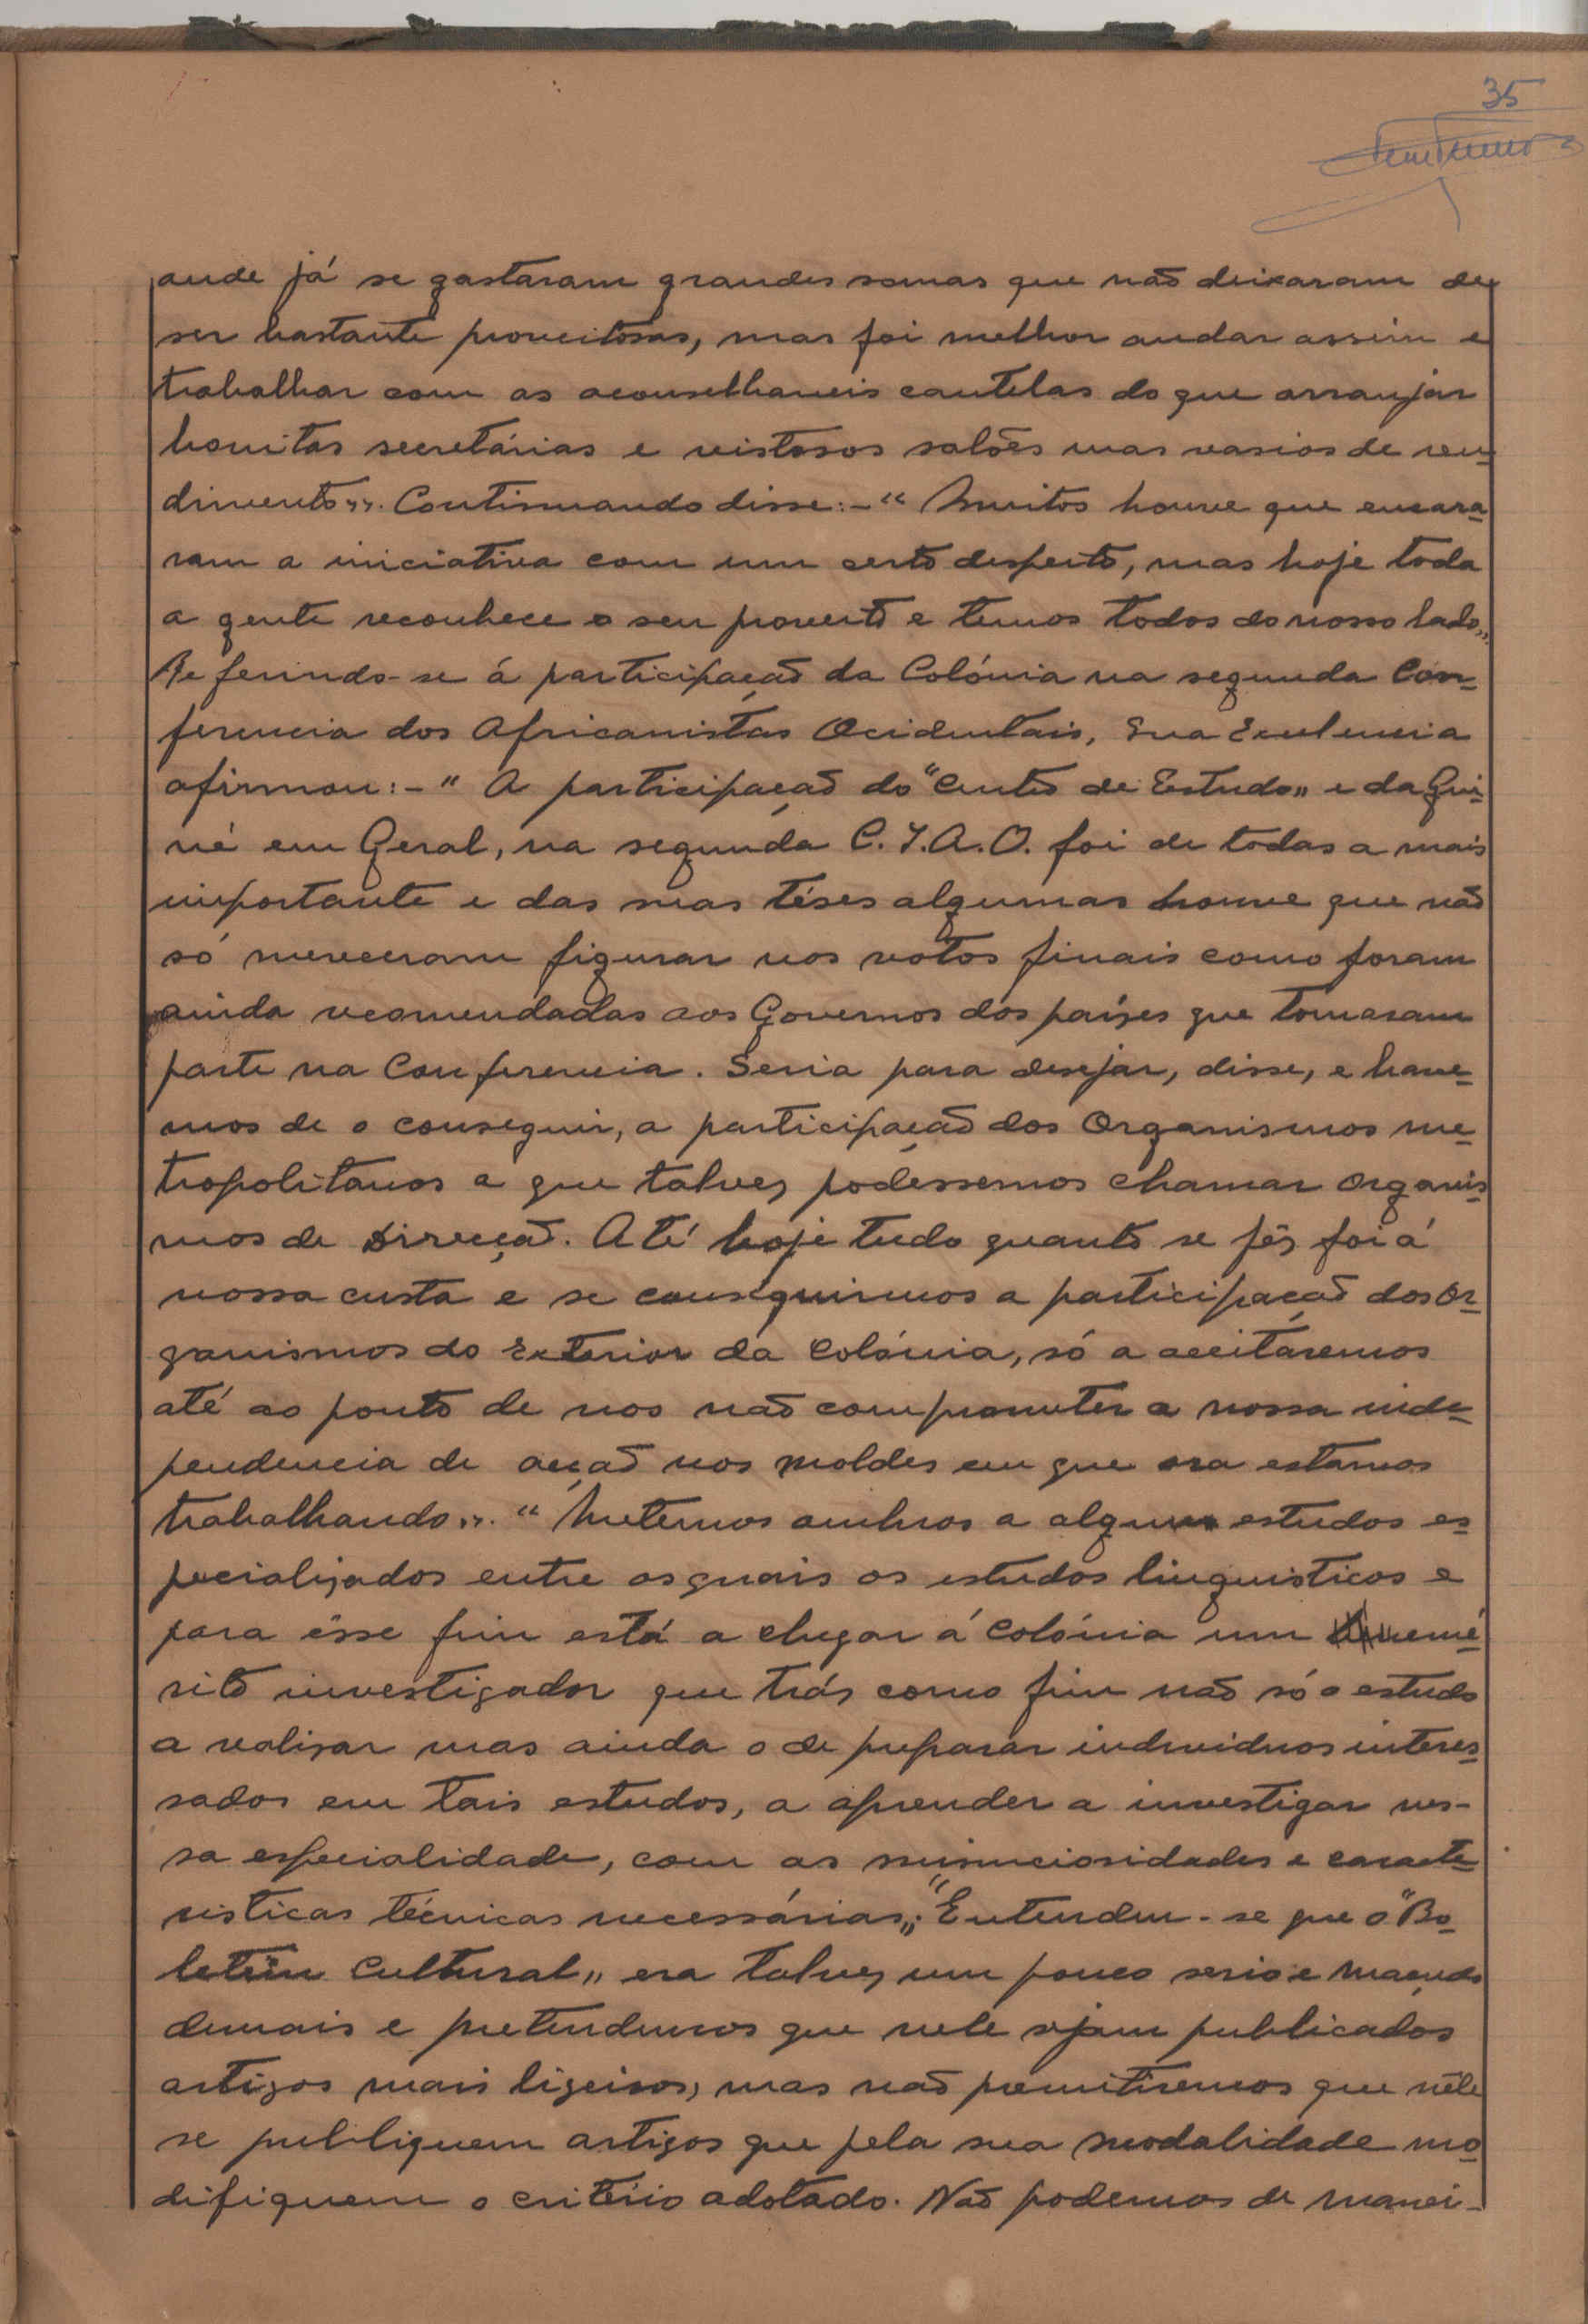 35
aude já se gastaram grandes somas que não deixaram de
ser bastante proveitosas, mas foi melhor andar assim e
trabalhar com as aconselhaveis cautelas do que arranjar
bonitas secretárias e vistosos salões mas vasios de ren-
dimento". Continuando disse:-" Muitos houve que encara-
ram a iniciativa com um certo despeito, mas hoje toda
a gente reconhece o seu proveito e temos todos do nosso lado"
Referindo-se á participação da Colónia na segunda Con-
ferencia dos Africanistas Ocidentais, Sua Excelencia
afirmou:-" A participação do "Centro de Estudo" e da Gui-
né em Geral, na segunda C.I.A.O. foi de todas a mais
importante e das suas téses algumas houve que não
só mereceram figurar nos votos finais como foram
ainda recomendadas aos Governos dos países que tomaram
parte na Conferencia. Seria para desejar, disse, e have-
mos de o conseguir, a participação dos Organismos me-
tropolitanos a que talvez podéssemos chamar Organis-
mos de Direcção. Até hoje tudo quanto se fêz foi á
nossa custa e se conseguirmos a participação dos Or-
ganismos do Exterior da Colónia, só a aceitaremos
até ao ponto de nos não comprometer a nossa inde-
pendencia de acção nos moldes em que ora estamos
trabalhando". " Metemos ombros a alguns estudos es-
pecializados entre os quais os estudos linguisticos e
para êsse fim está a chegar á Colónia um emé-
rito investigador que tráz como fim não só o estudo
a realizar mas ainda o de preparar individuos interes-
sados em tais estudos, a aprender a investigar nes-
sa especialidade, com as minuciosidades e caracte-
risticas técnicas necessárias"; "Entendeu-se que o "Bo-
letim Cultural" era talvez um pouco serio e maçudo
demais e pretendemos que nele sejam publicados
artigos mais ligeiros, mas não permitiremos que nêle
se publiquem artigos que pela sua modalidade mo-
difiquem o critério adotado. Não podemos de manei-